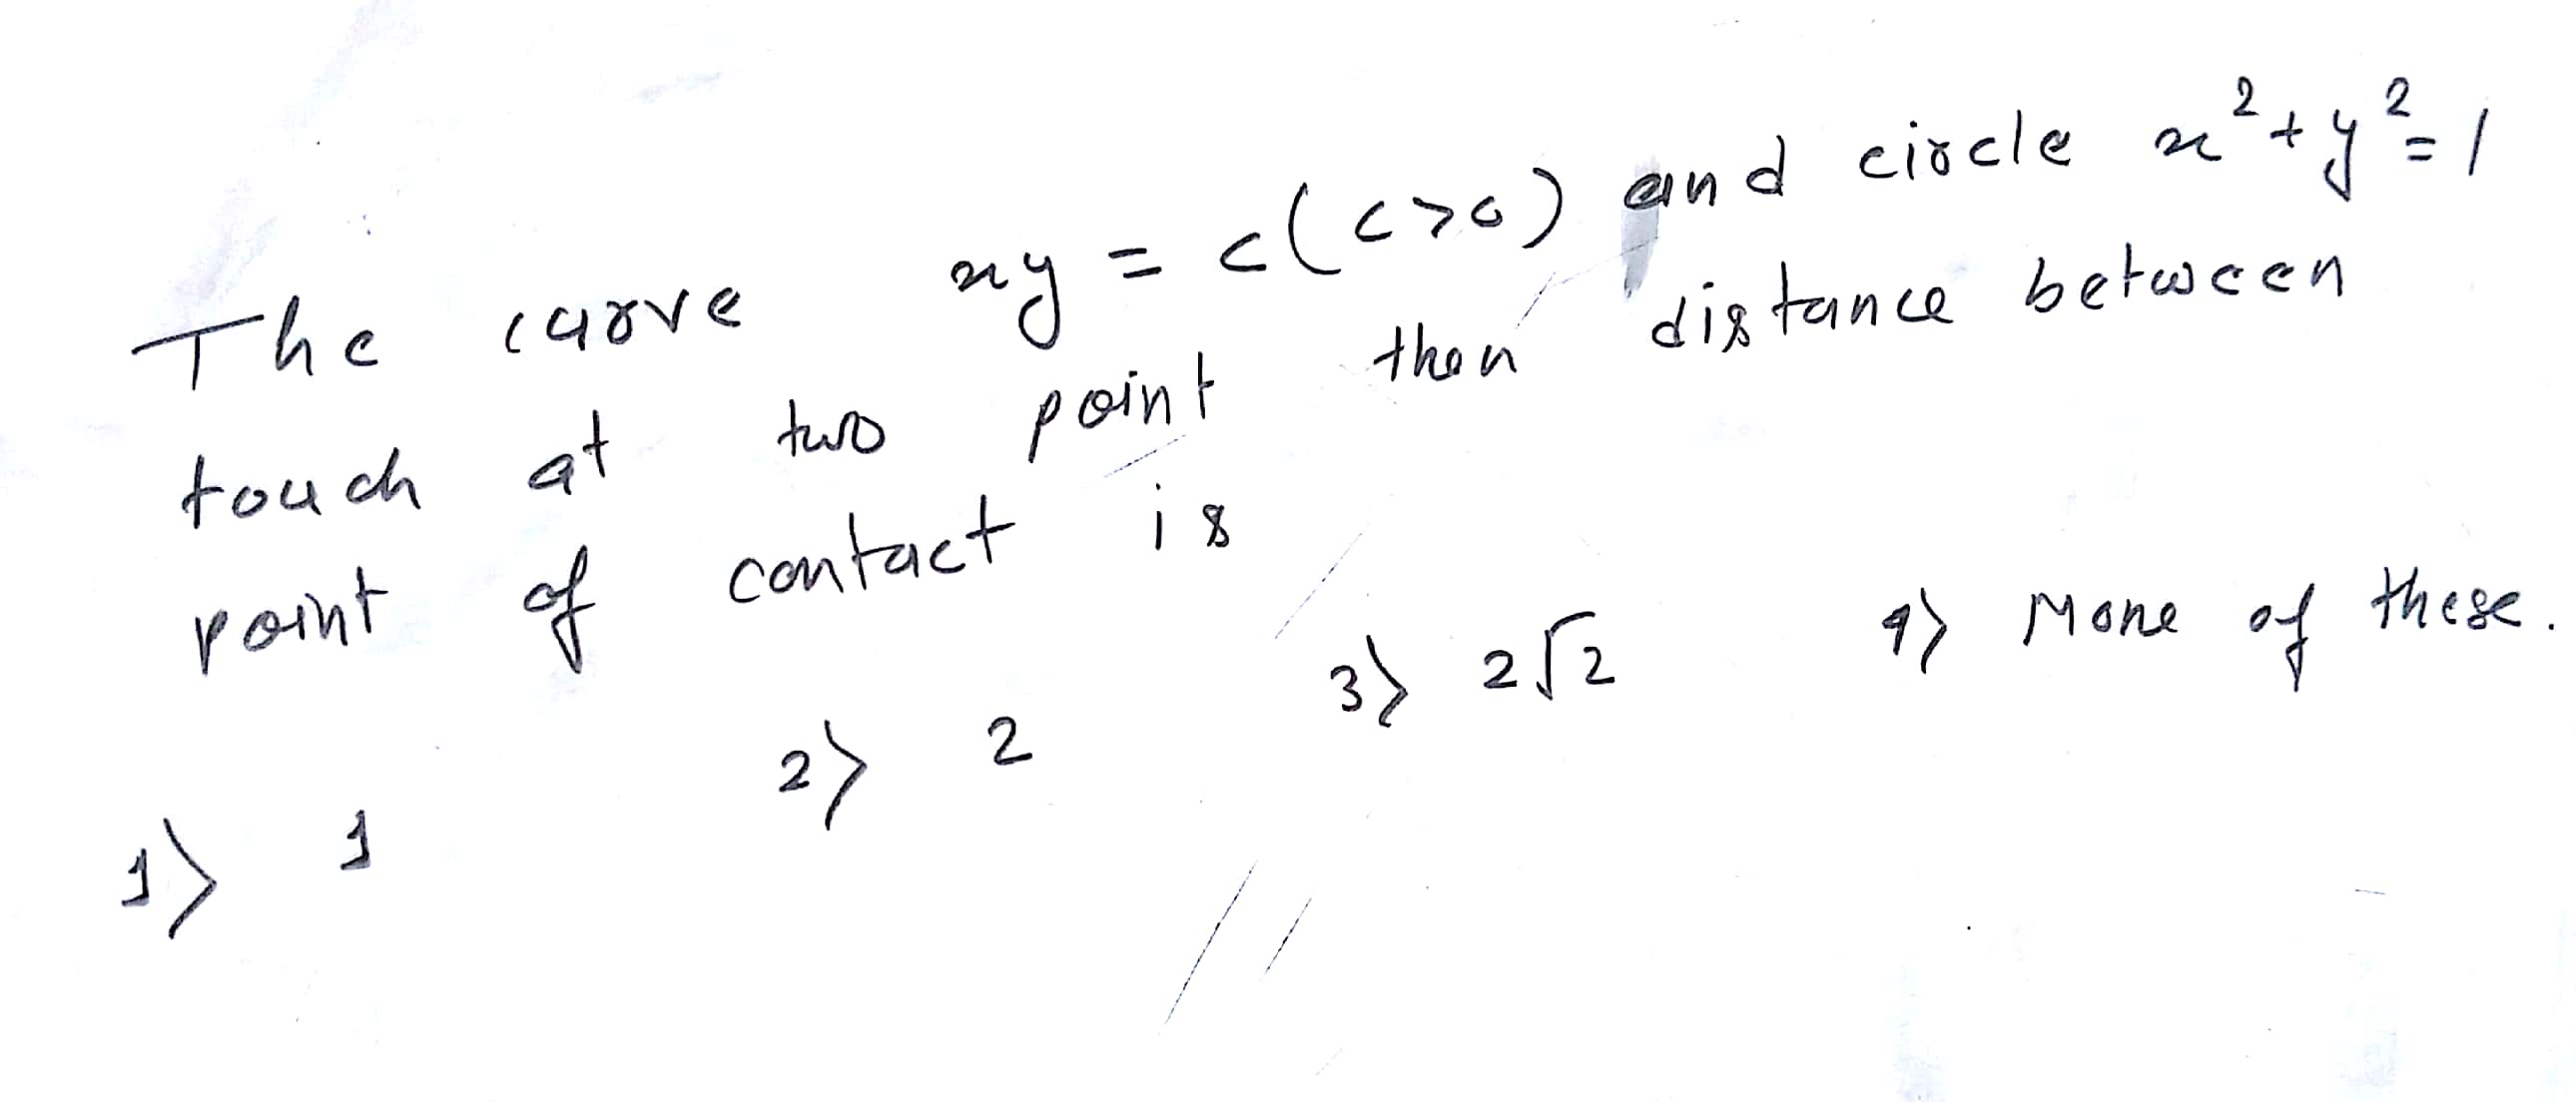 The curve xy = c(c>0) and circle x²+y²=1
touch at two point then distance between
point of contact is
1> 1 2> 2 3> 2√2 4> None of these.